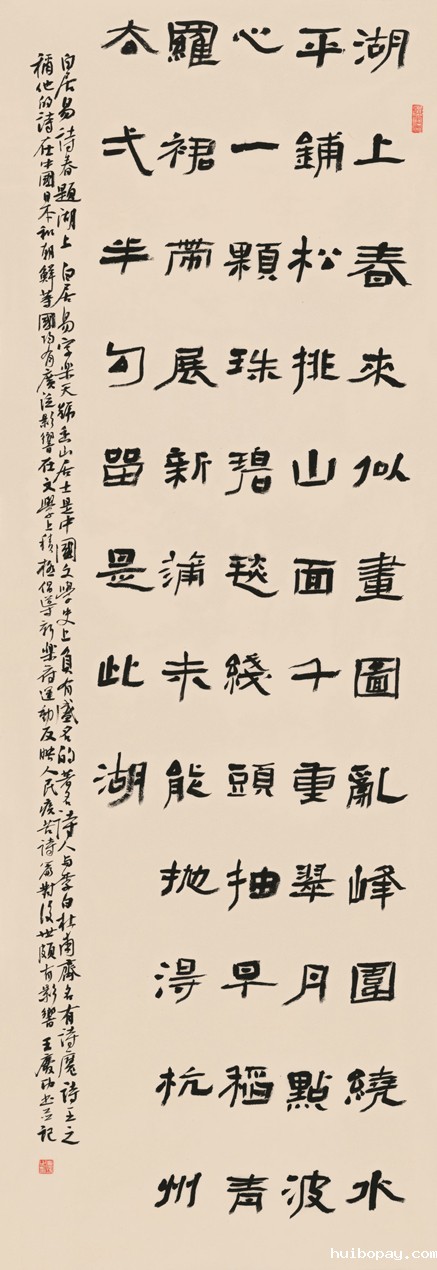 湖上春來似畫圖亂峰圍繞水
平鋪松排山面千重翠月點波
心一顆珠碧毯綫頭抽早稻青
羅裙帶展新蒲未能抛得杭州
去弌半勾留是此湖
白居易詩春題湖上 白居易字樂天號香山居士是中國文學史上負有盛名的著名詩人与李白杜甫齊名有詩魔詩王之
稱他的詩在中國日本和朝鮮等國均有廣泛影響在文學上積極倡導新樂府運動反映人民疾苦詩篇對後世頗有影響 王慶
huibopay.com